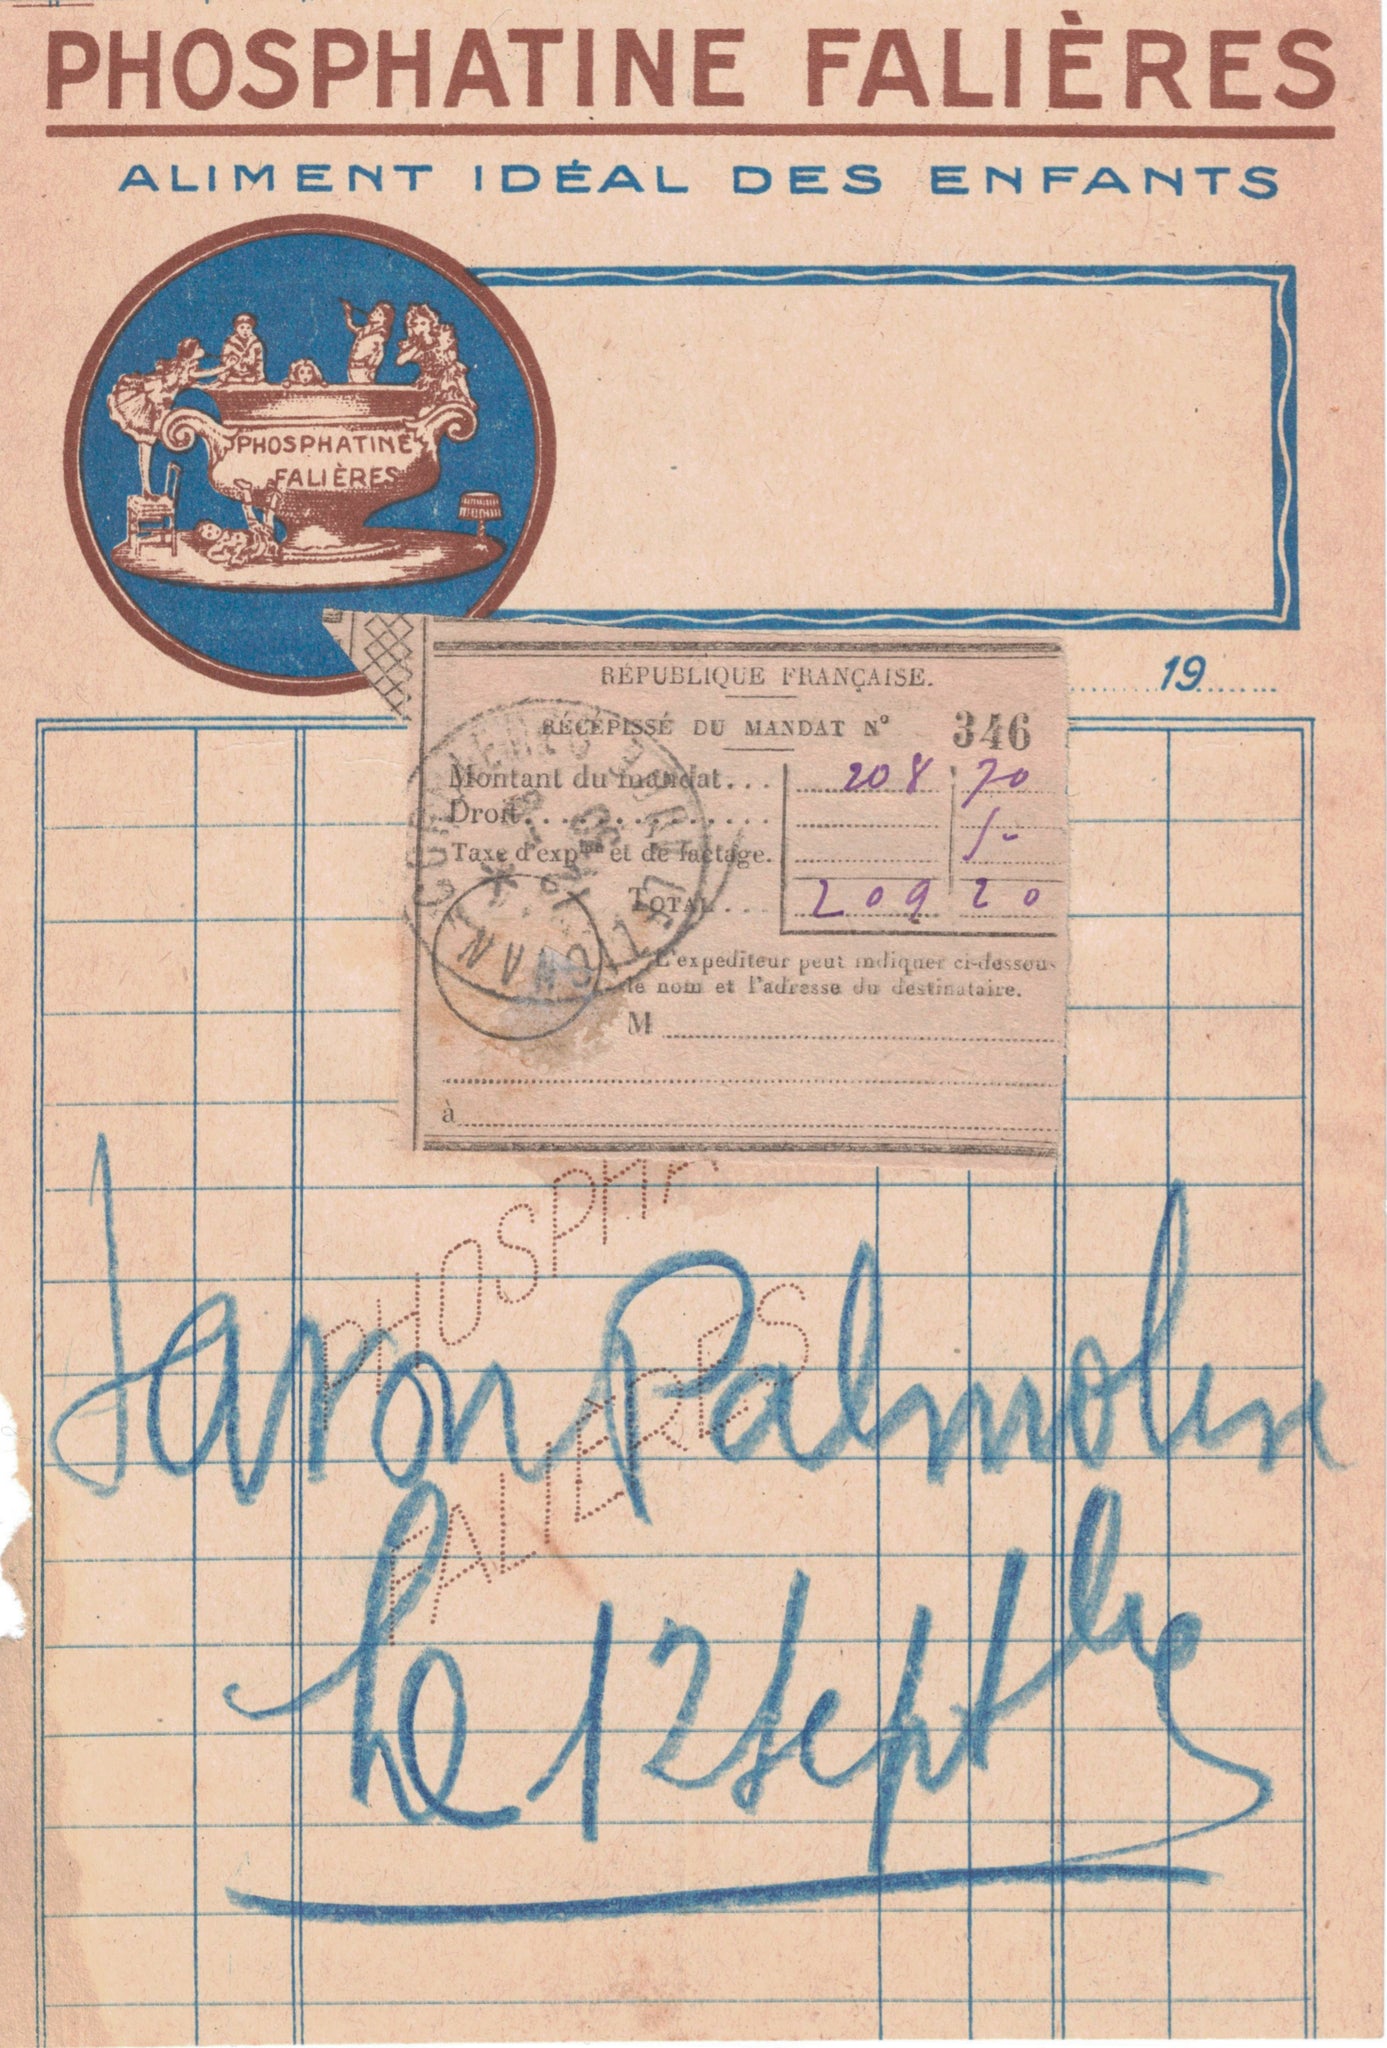 PHOSPHATINE FALIÈRES
ALIMENT IDÉAL DES ENFANTS
PHOSPHATINE
FALIÈRES
19
RÉPUBLIQUE FRANÇAISE.
RÉCÉPISSÉ DU MANDAT N° 346
Montant du mandat... 208 70
Droit.............
Taxe d'expon et de factage.
TOTAL... 209 20
L'expéditeur peut indiquer ci-dessous
le nom et l'adresse du destinataire.
M
à
PHOSPHA
FALIERES
Savon Palmolive
le 12 septbre